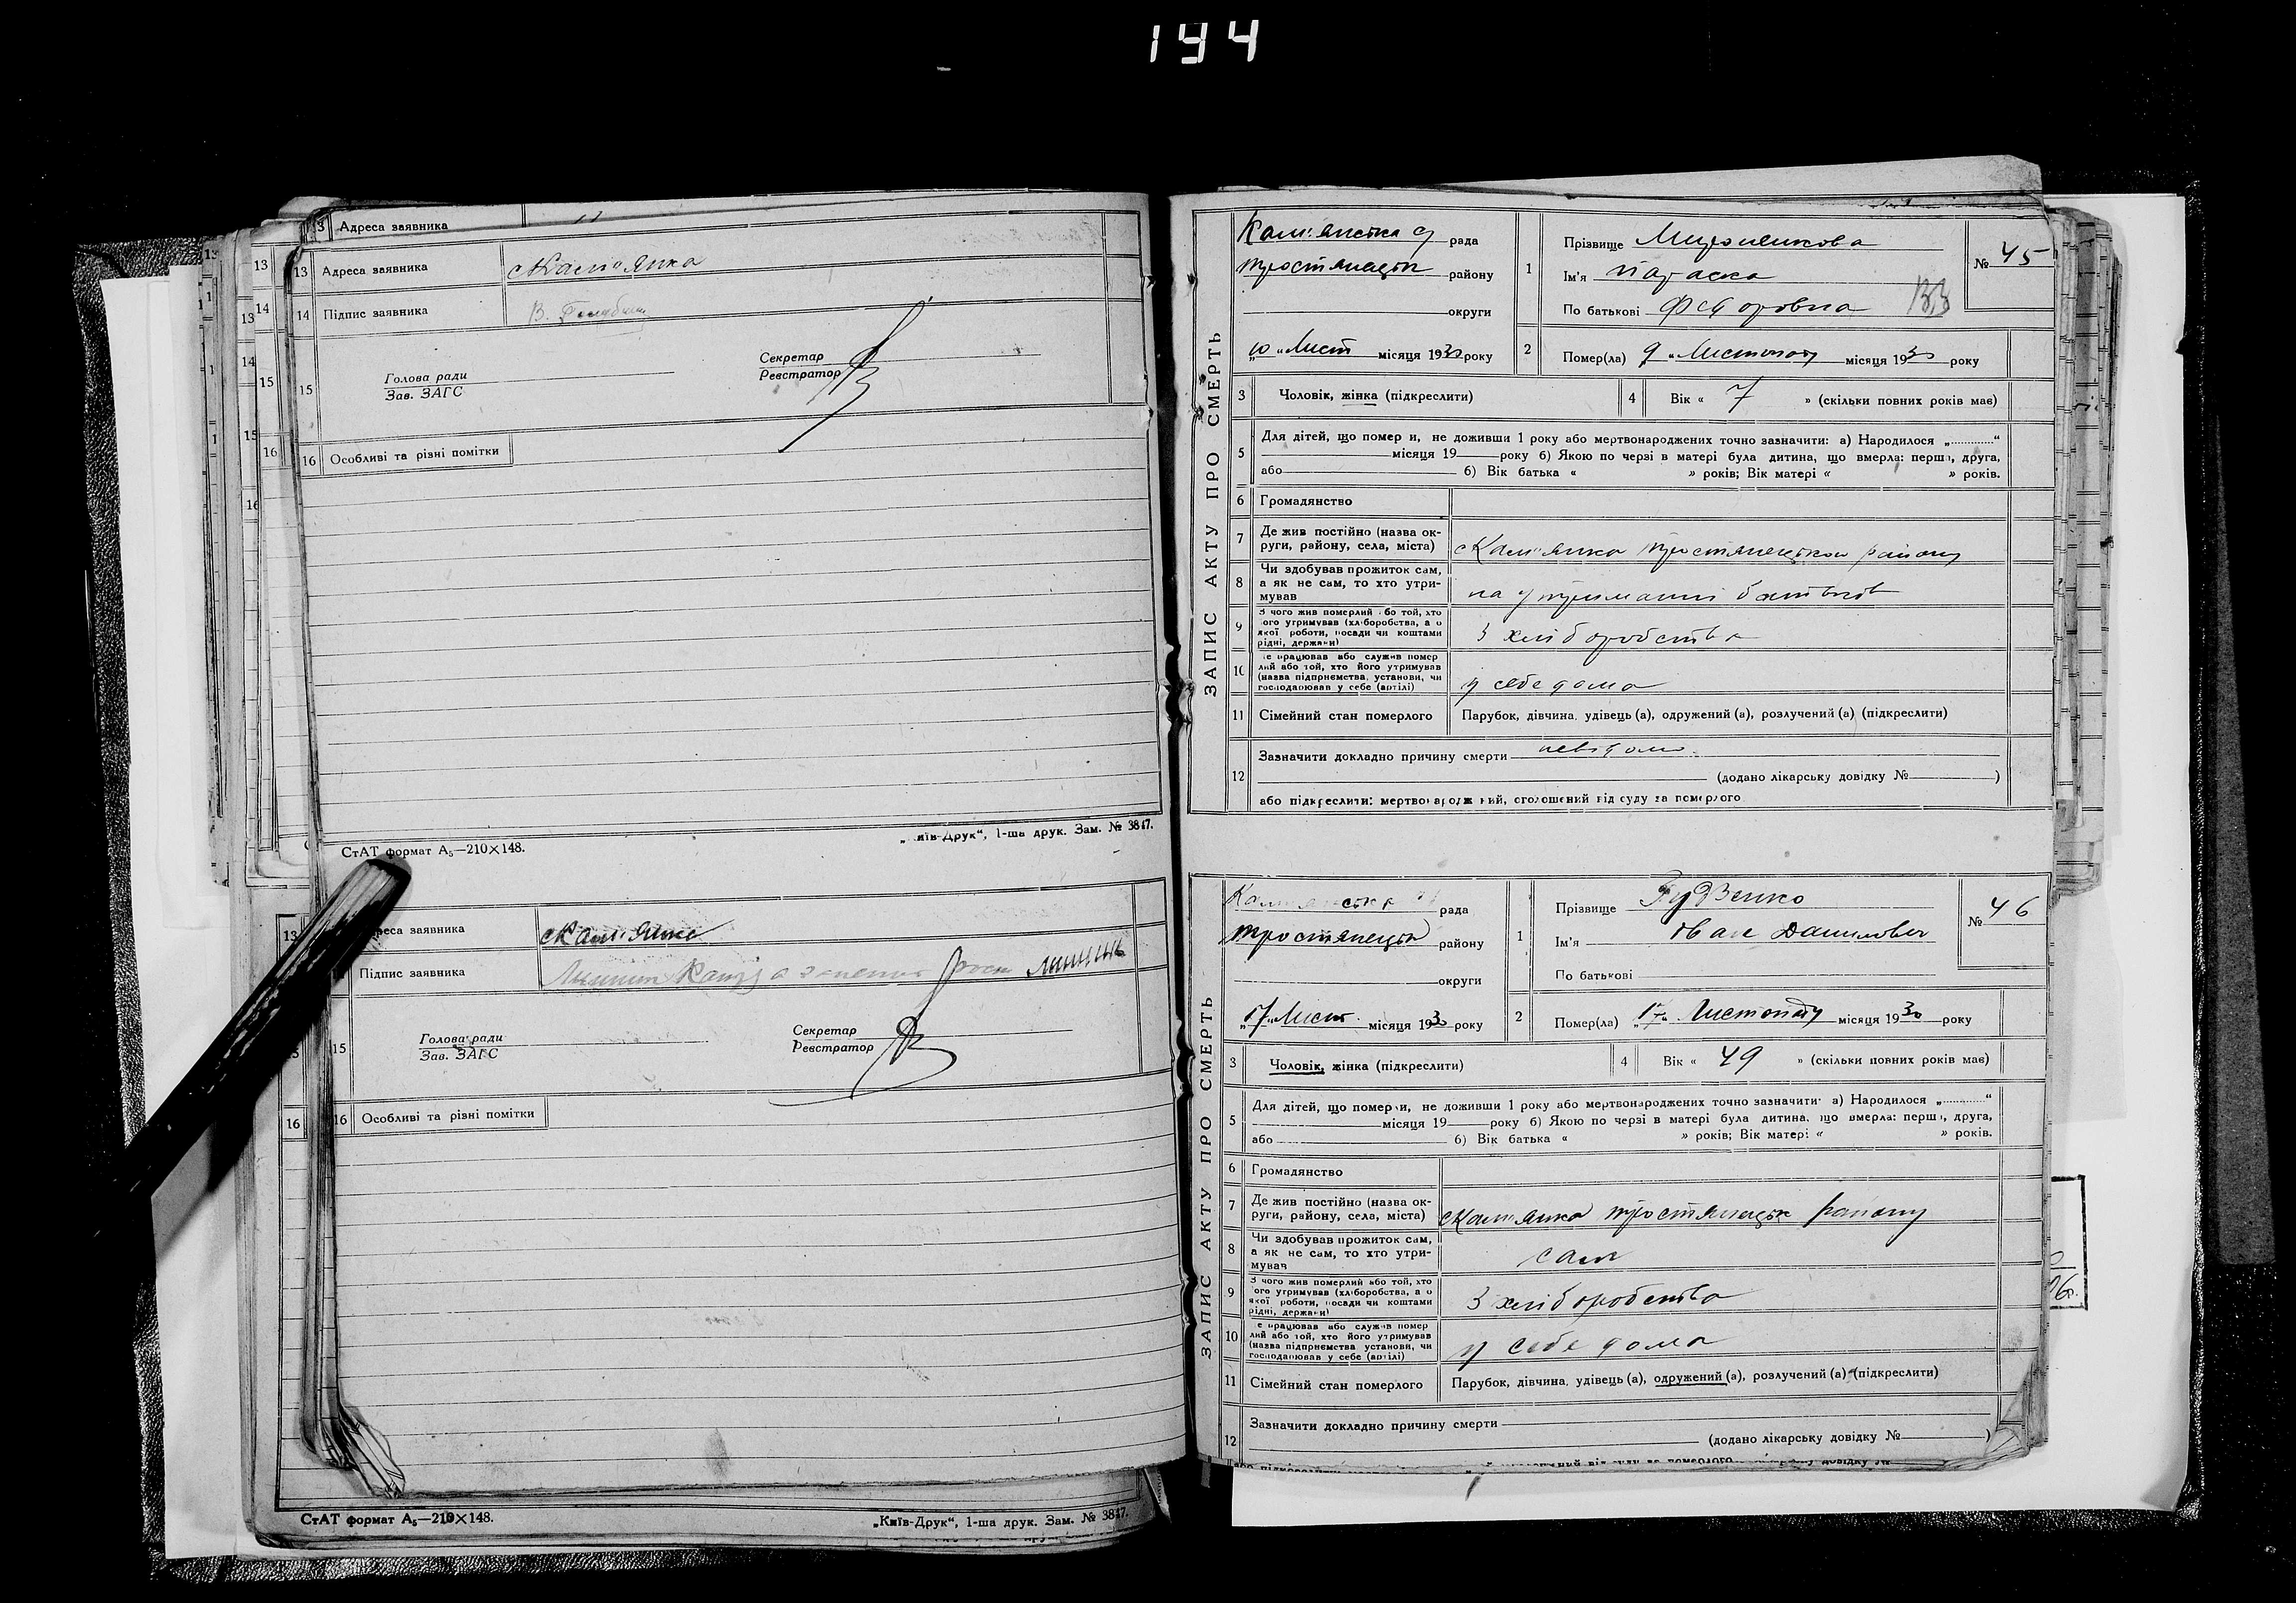 194
3 Адреса заявника
13 Адреса заявника с Кам'янка
14 Підпис заявника В.
15 Голова ради Секретар
Зав. ЗАГС Реєстратор
16 Особливі та різні помітки
СтАТ формат А₅—210×148. „Київ-Друк“, 1-ша друк. Зам. № 3847.
Адреса заявника с Кам'янка
Підпис заявника
15 Голова ради Секретар
Зав. ЗАГС Реєстратор
16 Особливі та різні помітки
СтАТ формат А₅—210×148. „Київ-Друк“, 1-ша друк. Зам. № 3847.
ЗАПИС АКТУ ПРО СМЕРТЬ
Кам'янська рада
Тростянецьк району
округи
„10“ Лист місяця 1930 року
1 Прізвище Мироненкова
Ім'я Параска
По батькові Федоровна
№ 45
133
2 Помер(ла) 9 „Листопаду місяця 1930 року
3 Чоловік, жінка (підкреслити)
4 Вік « 7 » (скільки повних років має)
5 Для дітей, що померли, не доживши 1 року або мертвонароджених точно зазначити: а) Народилося „............“
місяця 19 року б) Якою по черзі в матері була дитина, що вмерла: перша, друга,
або б) Вік батька « » років; Вік матері « » років.
6 Громадянство
7 Де жив постійно (назва округи, району, села, міста) с Кам'янка Тростянецького району
8 Чи здобував прожиток сам, а як не сам, то хто утримував на утриманні батьків
9 З чого жив померлий або той, хто його утримував (хліборобства, а о якої роботи, посади чи коштами рідні, держави) З хліборобства
10 Де працював або служив померлий або той, хто його утримував (назва підприємства, установи, чи господарював у себе (артілі) у себе дома
11 Сімейний стан померлого Парубок, дівчина, удівець (а), одружений (а), розлучений (а) (підкреслити)
12 Зазначити докладно причину смерти невідомо
(додано лікарську довідку № )
або підкреслити: мертвонароджений, оголошений від суду за померлого
ЗАПИС АКТУ ПРО СМЕРТЬ
Кам'янська рада
Тростянецьк району
округи
„17“ Лист місяця 1930 року
1 Прізвище Гудзенко
Ім'я Іван Данилович
По батькові
№ 46
2 Помер(ла) „17“ Листопаду місяця 1930 року
3 Чоловік, жінка (підкреслити)
4 Вік « 49 » (скільки повних років має)
5 Для дітей, що померли, не доживши 1 року або мертвонароджених точно зазначити: а) Народилося „............“
місяця 19 року б) Якою по черзі в матері була дитина, що вмерла: перша, друга,
або б) Вік батька « » років; Вік матері « » років.
6 Громадянство
7 Де жив постійно (назва округи, району, села, міста) с Кам'янка Тростянецьк району
8 Чи здобував прожиток сам, а як не сам, то хто утримував сам
9 З чого жив померлий або той, хто його утримував (хліборобства, а о якої роботи, посади чи коштами рідні, держави) З хліборобства
10 Де працював або служив померлий або той, хто його утримував (назва підприємства установи, чи господарював у себе (артілі) у себе дома
11 Сімейний стан померлого Парубок, дівчина, удівець (а), одружений (а), розлучений (а) (підкреслити)
12 Зазначити докладно причину смерти
(додано лікарську довідку № )